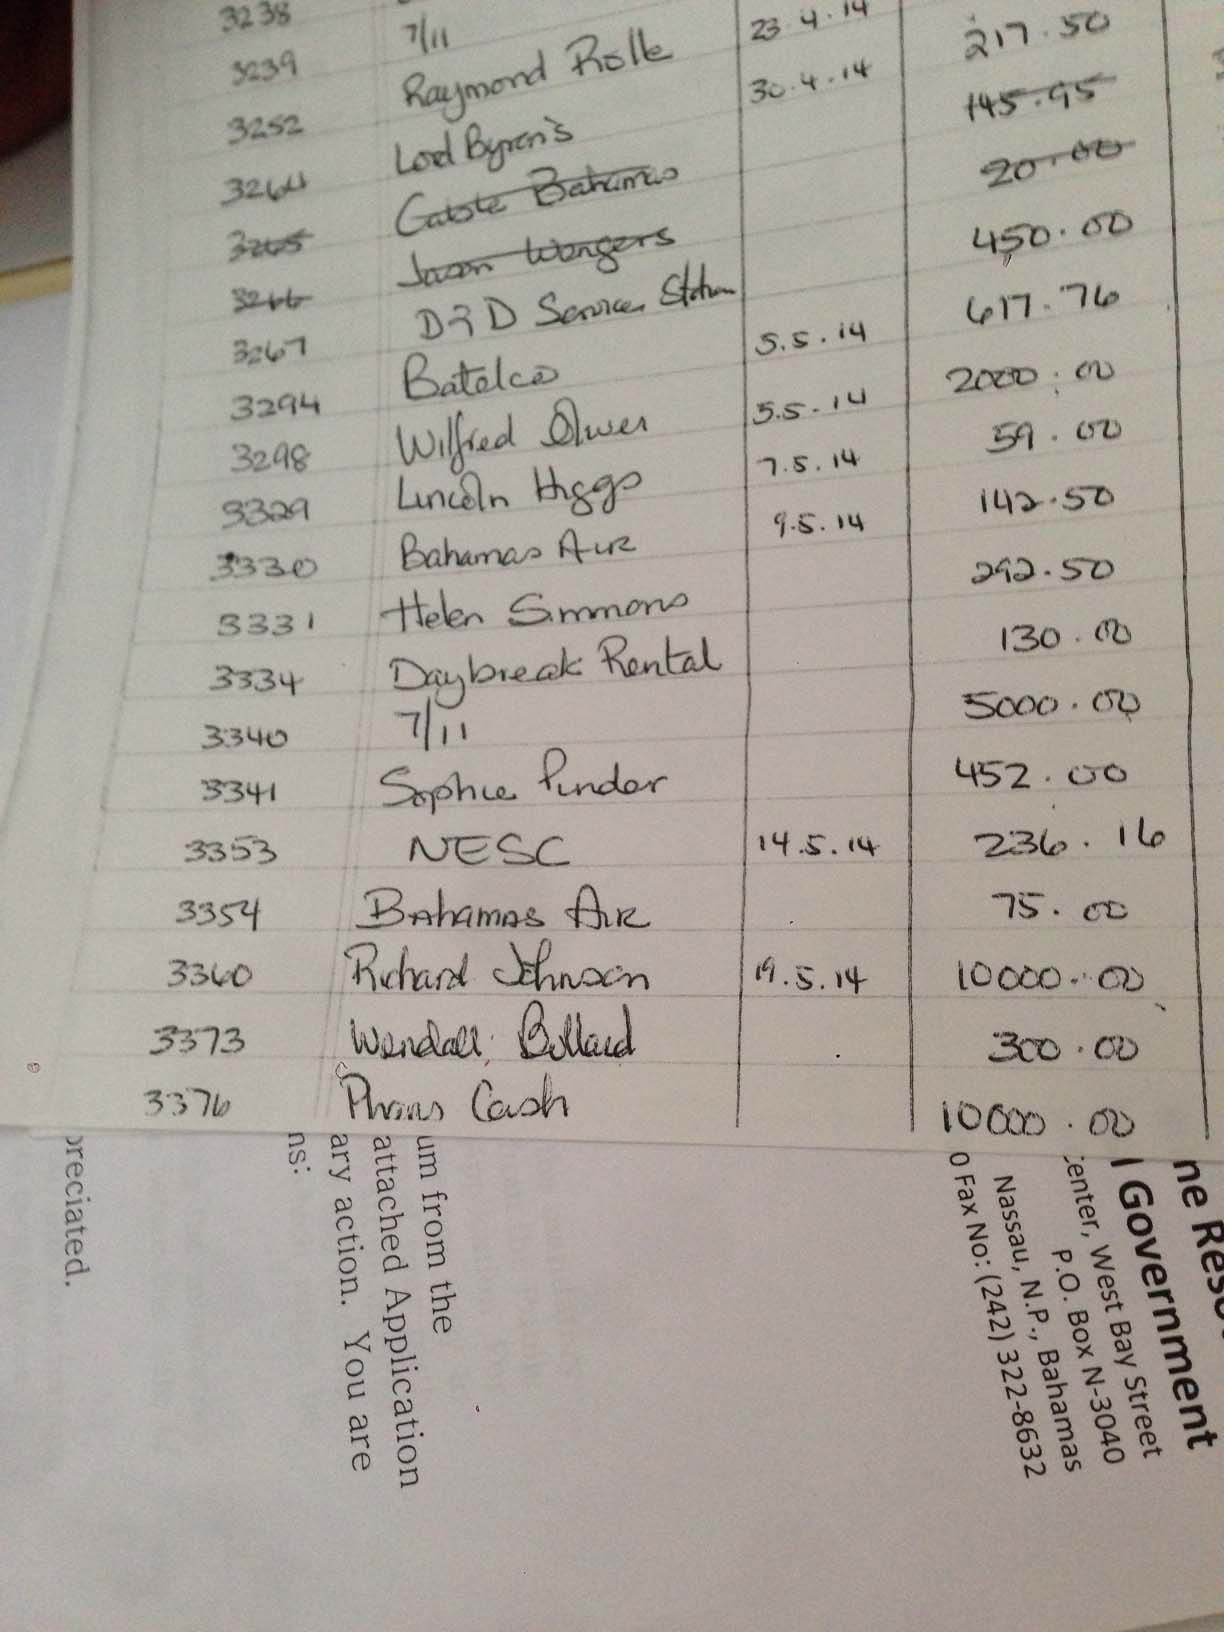 3238
3239 7/11 23.4.14
3252 Raymond Rolle 30.4.14
3264 Lord Byron's 217.50
3265 Bahamas 145.95
3266 Jason 20.00
3267 D&D Service Station 450.00
3294 Batelco 5.5.14 617.76
3298 Wilfred Oliver 5.5.14 2000.00
3329 Lincoln Higgs 7.5.14 59.00
3330 Bahamas Air 9.5.14 142.50
3331 Helen Simmons 292.50
3334 Daybreak Rental 130.00
3340 7/11 5000.00
3341 Sophie Pinder 452.00
3353 NESC 14.5.14 236.16
3354 Bahamas Air 75.00
3360 Richard Johnson 19.5.14 10000.00
3373 Wendall Bullard 300.00
3376 Cash 10000.00
Government
enter, West Bay Street
P.O. Box N-3040
Nassau, N.P., Bahamas
0 Fax No: (242) 322-8632
um from the
attached Application
ary action. You are
ns:
preciated.